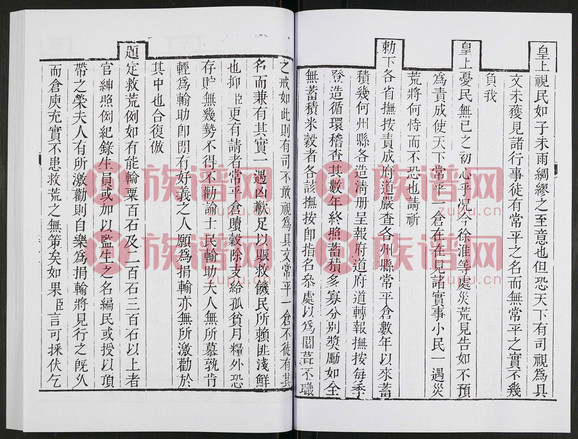 皇上視民如子未雨綢繆之至意也但恐天下有司視爲具
文未獲見諸行事徒有常平之名而無常平之實不幾
負我
皇上憂民無已之初心乎况今徐淮等處災荒見告如不預
爲責成使天下常平一倉在在見諸實事小民一遇災
荒將何恃而不恐也請祈
勅下各省撫按責成府道嚴查各州縣常平倉數年以來蓄
積幾何州縣各造清冊呈報府道府道轉報撫按每季
登造循環稽查其數年終照蓄積多寡分别奬勵如全
無蓄積米穀者各該撫按即指名叅處以爲闒葺不職
之戒如此則有司不敢視爲具文常平一倉不徒有其
名而兼有其實一遇凶歉足以賑救饑民所賴匪淺鮮
也抑臣更有請者常平倉贖穀除支給孤貧月糧外恐
存貯無幾勢不得不勸諭士民輸助夫人無所慕孰肯
輕爲輸助即間有好義之人願爲捐輸亦無所激勸於
其中也合復倣
題定救荒例如有能輸粟百石及二百石三百石以上者
官紳照例紀錄生員或加以監生之名編民或授以頂
帶之榮夫人有所激勸則自樂爲捐輸將見行之旣久
而倉庾充實不患救荒之無策矣如果臣言可採伏乞
族谱网
族谱网
族谱网
族谱网